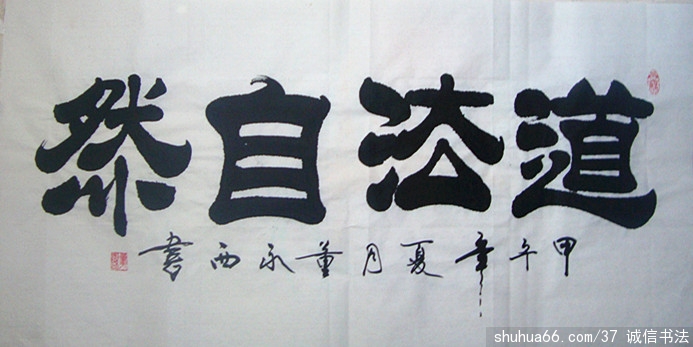 道法自然
甲午年夏月董永西書
shuhua66.com/37 诚信书法